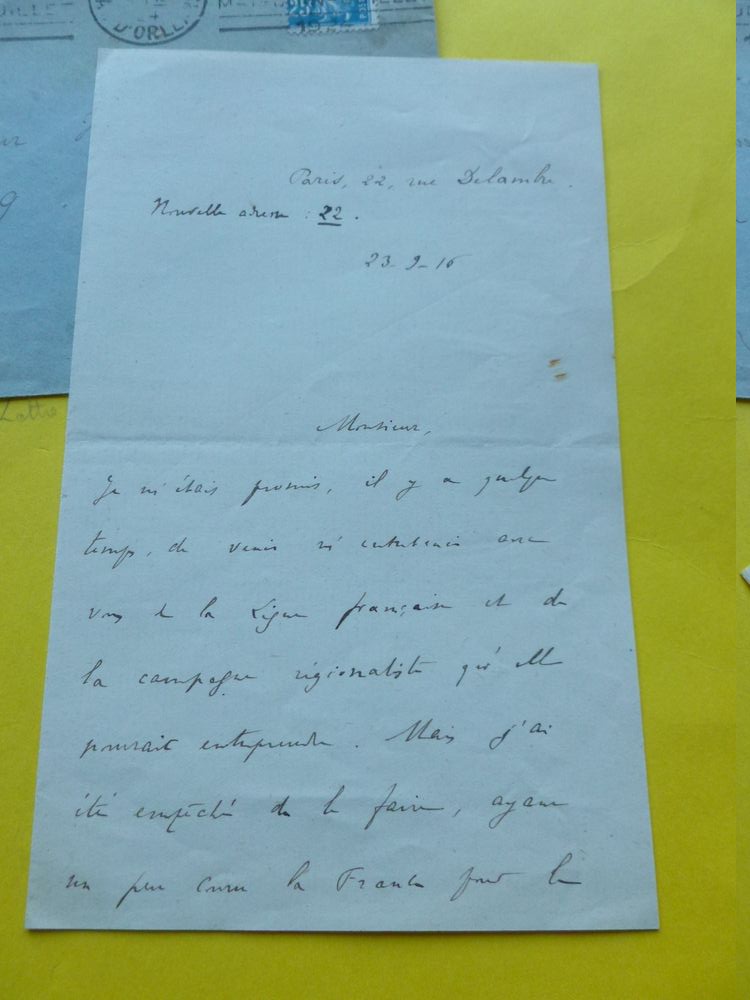 D'ORLE
25
Paris, 22, rue Delambre.
Nouvelle adresse : 22.
23-9-16
Monsieur,
Je m'étais promis, il y a quelque
temps, de venir m'entretenir avec
vous de la Ligue française et de
la campagne régionaliste qu'elle
pourrait entreprendre. Mais j'ai
été empêché de le faire, ayant
un peu couru la France pour le